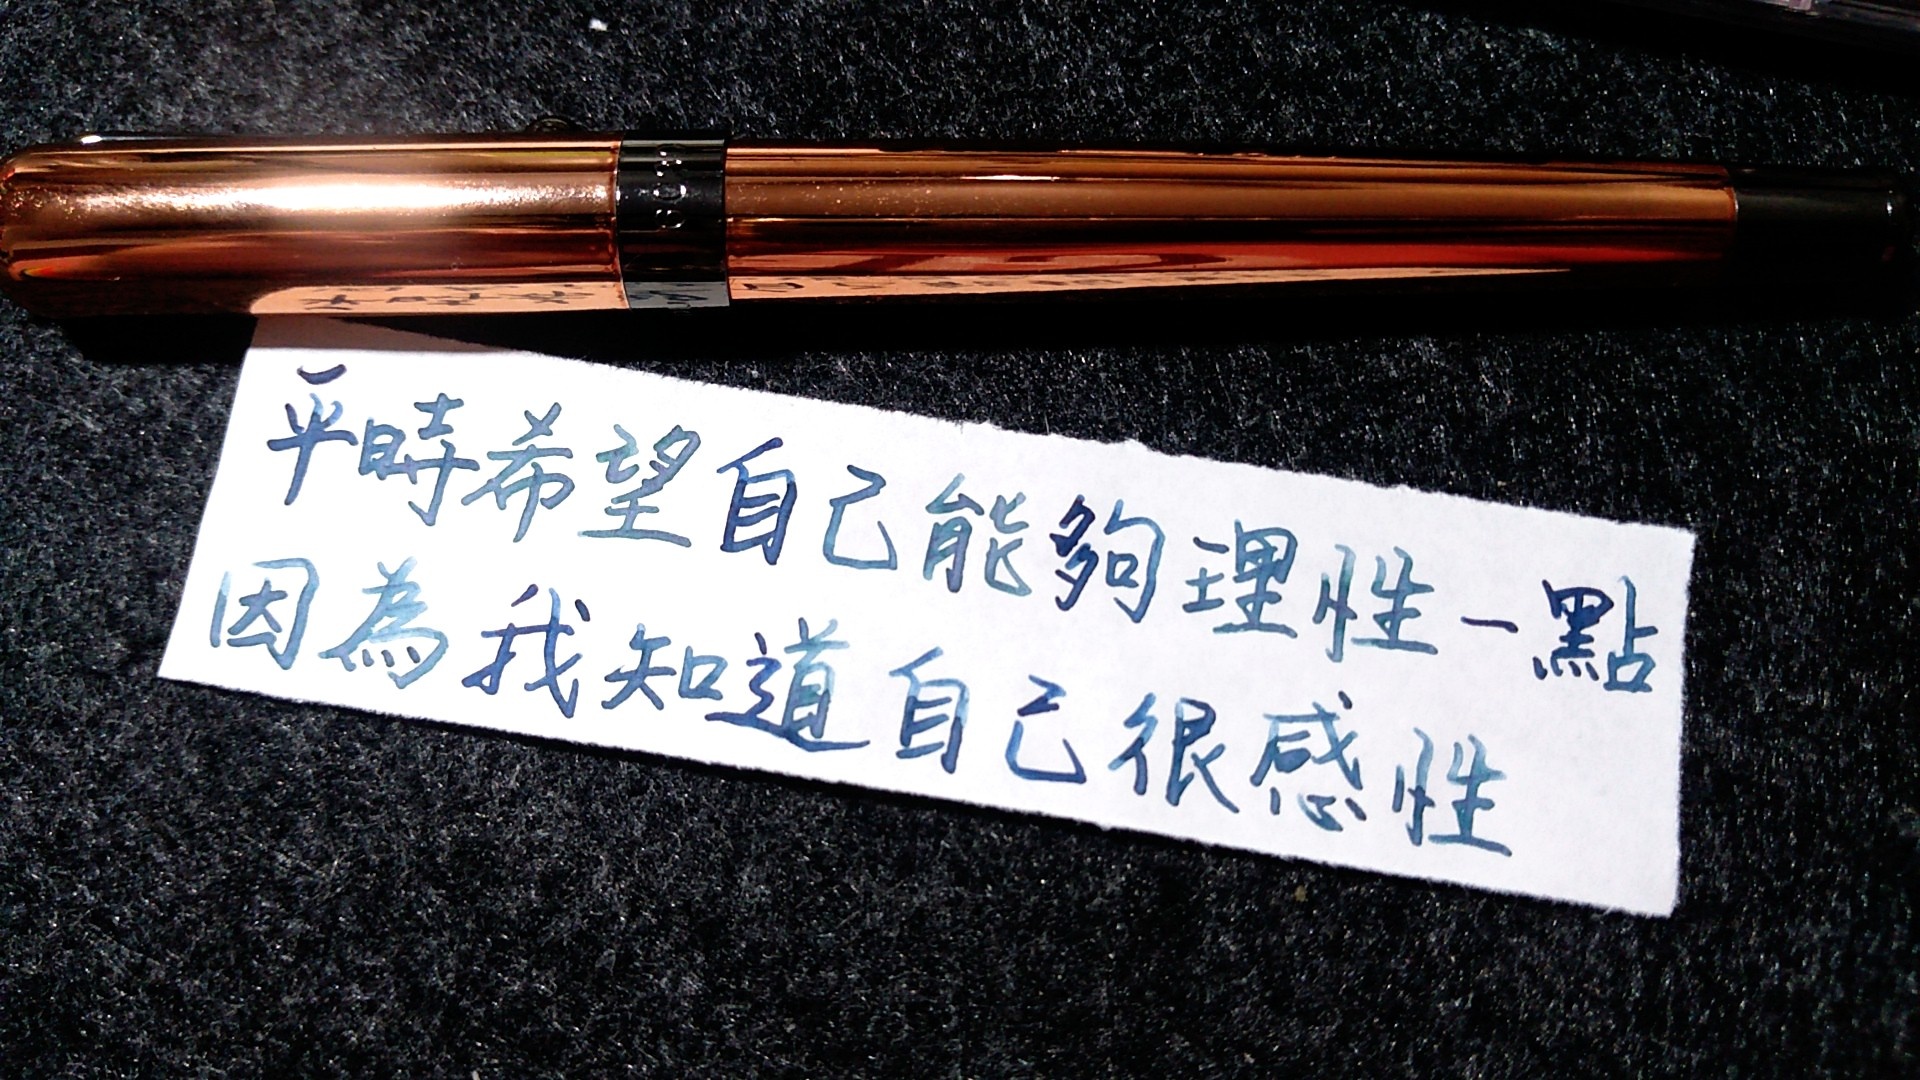 平時希望自己能夠理性一點
因為我知道自己很感性